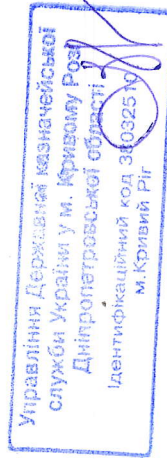 Управління Державної казначейської
служби України у м. Кривому Розі
Дніпропетровської області
Ідентифікаційний код
м.Кривий Ріг